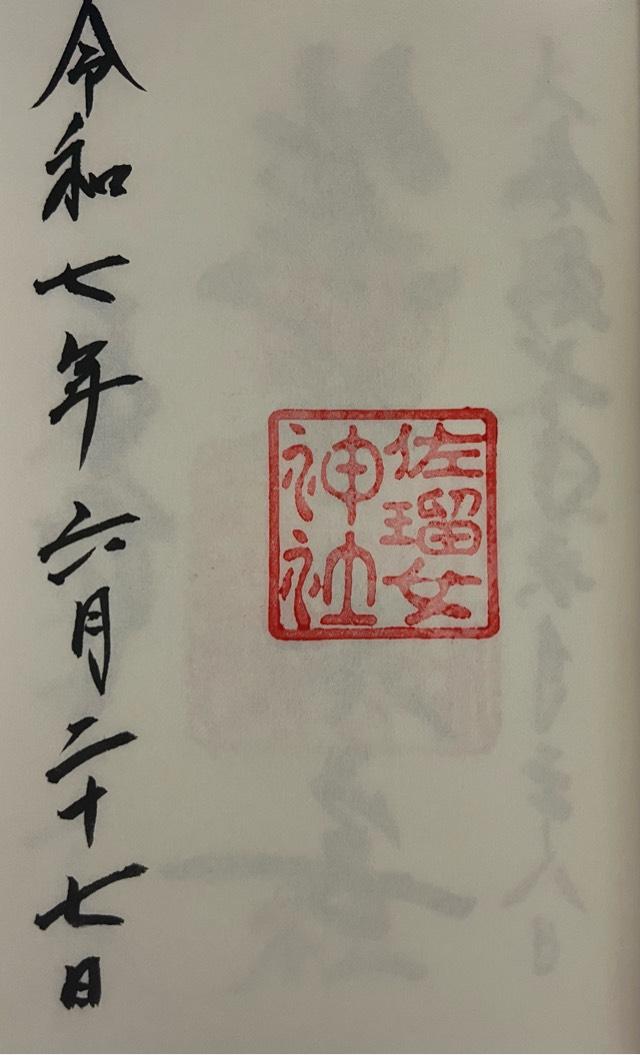 佐瑠女
神社
令和七年六月二十七日